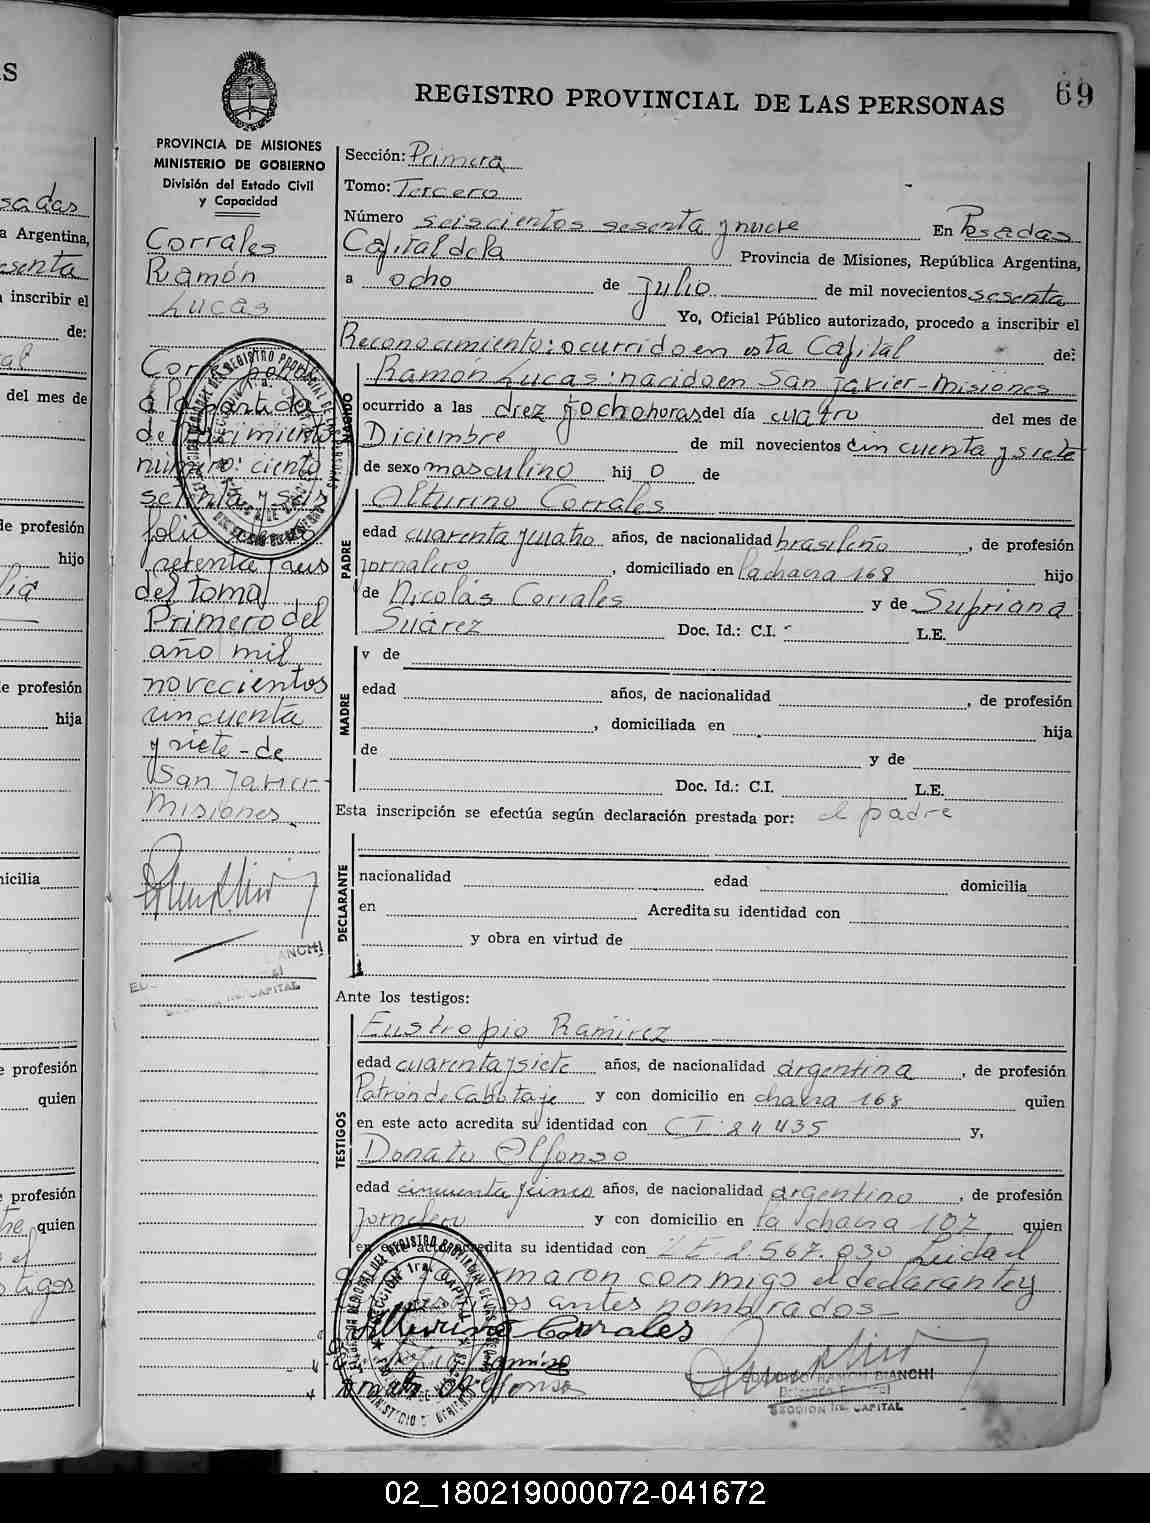 REGISTRO PROVINCIAL DE LAS PERSONAS
69
PROVINCIA DE MISIONES
MINISTERIO DE GOBIERNO
División del Estado Civil
y Capacidad
Corrales
Ramón
Lucas
Corresponde
a la partida
de nacimiento
número: ciento
setenta y seis
folio
setenta y seis
del tomo
Primero del
año mil
novecientos
cincuenta
y siete - de
San Javier -
Misiones.
Sección: Primera
Tomo: Tercero
Número seiscientos sesenta y nueve En Posadas
Capital de la Provincia de Misiones, República Argentina,
a ocho de Julio de mil novecientos sesenta
Yo, Oficial Público autorizado, procedo a inscribir el
Reconocimiento: ocurrido en esta Capital de:
NACIDO
Ramón Lucas: nacido en San Javier - Misiones
ocurrido a las diez y ocho horas del día cuatro del mes de
Diciembre de mil novecientos cincuenta y siete
de sexo masculino hij o de
PADRE
Alturino Corrales
edad cuarenta y cuatro años, de nacionalidad brasileño, de profesión
Jornalero, domiciliado en la chacra 168 hijo
de Nicolás Corrales y de Supriana
Suárez Doc. Id.: C.I. L.E.
MADRE
y de
edad años, de nacionalidad , de profesión
, domiciliada en hija
de y de
Doc. Id.: C.I. L.E.
Esta inscripción se efectúa según declaración prestada por: el padre
DECLARANTE
nacionalidad edad domicilia
en Acredita su identidad con
y obra en virtud de
Ante los testigos:
TESTIGOS
Eustropio Ramirez
edad cuarenta y siete años, de nacionalidad argentina, de profesión
Patrón de Cabotaje y con domicilio en chacra 168 quien
en este acto acredita su identidad con CI. 24435 y,
Donato Alfonso
edad cincuenta y cinco años, de nacionalidad argentino, de profesión
Jornalero y con domicilio en la chacra 107 quien
en este acto acredita su identidad con L.E. 2.567.030 Leida el
firmaron conmigo el declarante y
antes nombrados -
Alturino Corrales
Ramirez
Donato Alfonso
RAMON BIANCHI
SECCION 1ra. CAPITAL
02_180219000072-041672